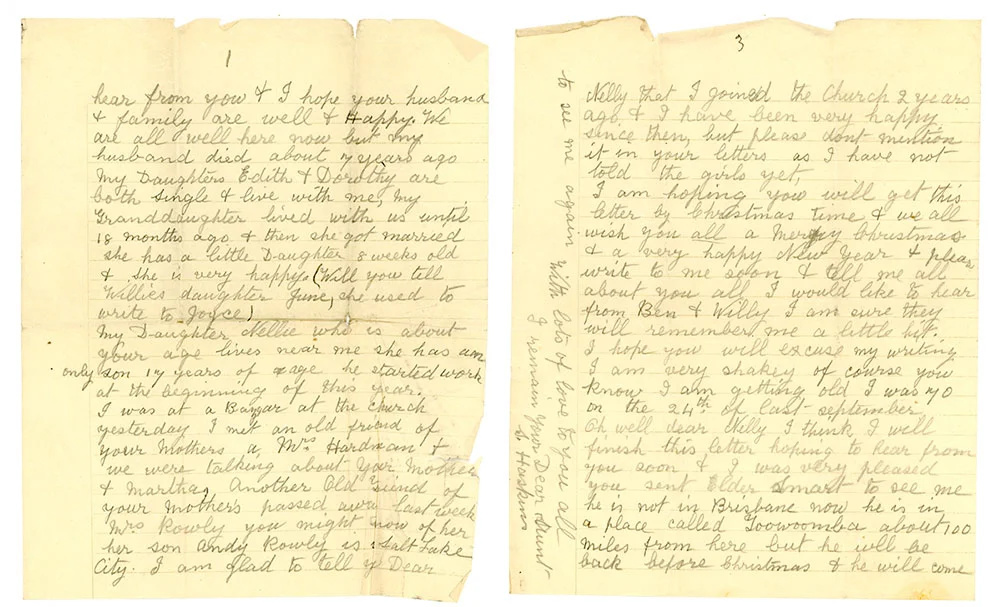 1
hear from you & I hope your husband
& family are well & Happy. We
are all well here now but my
husband died about 7 years ago
My Daughters Edith & Dorothy are
both single & live with me, my
Granddaughter lived with us until
18 months ago & then she got married
she has a little Daughter 8 weeks old
& she is very happy (Will you tell
Willies daughter June, she used to
write to Joyce)
My Daughter Nellie who is about
your age lives near me she has an
only son 17 years of age he started work
at the beginning of this year.
I was at a Bazaar at the Church
yesterday I met an old friend of
your Mothers a, Mrs Hardman &
we were talking about your Mother
& Martha, Another Old friend of
your Mothers passed away last week
Mrs Rowly you might now of her
her son Andy Rowly is Salt Lake
City. I am glad to tell y Dear
3
Nelly that I joined the Church 2 years
ago & I have been very happy
since then, but please dont mention
it in your letters as I have not
told the girls yet,
I am hoping you will get this
letter by Christmas time & we all
wish you all a Merry Christmas
& a very happy New Year & pleas
write to me soon & tell me all
about you all I would like to hear
from Ben & Willy I am sure they
will remember me a little bit.
I hope you will excuse my writing
I am very shakey of course you
know I am getting old I was 70
on the 24th of last september
Oh well dear Nilly I think I will
finish this letter hoping to hear from
you soon & I was very pleased
you sent Elder Smart to see me
he is not in Brisbane now he is in
a place called Toowoomba about 100
miles from here but he will be
back before Christmas & he will come
to see me again with lots of love to you all
I remain your Dear Aunt
S Haskins